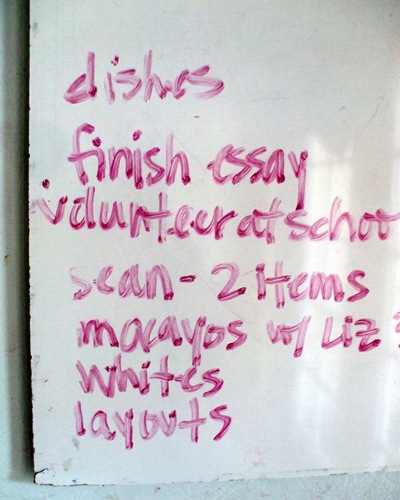 dishes
finish essay
volunteer at schoo
sean - 2 items
mocayos w/ Liz ?
whites
layouts